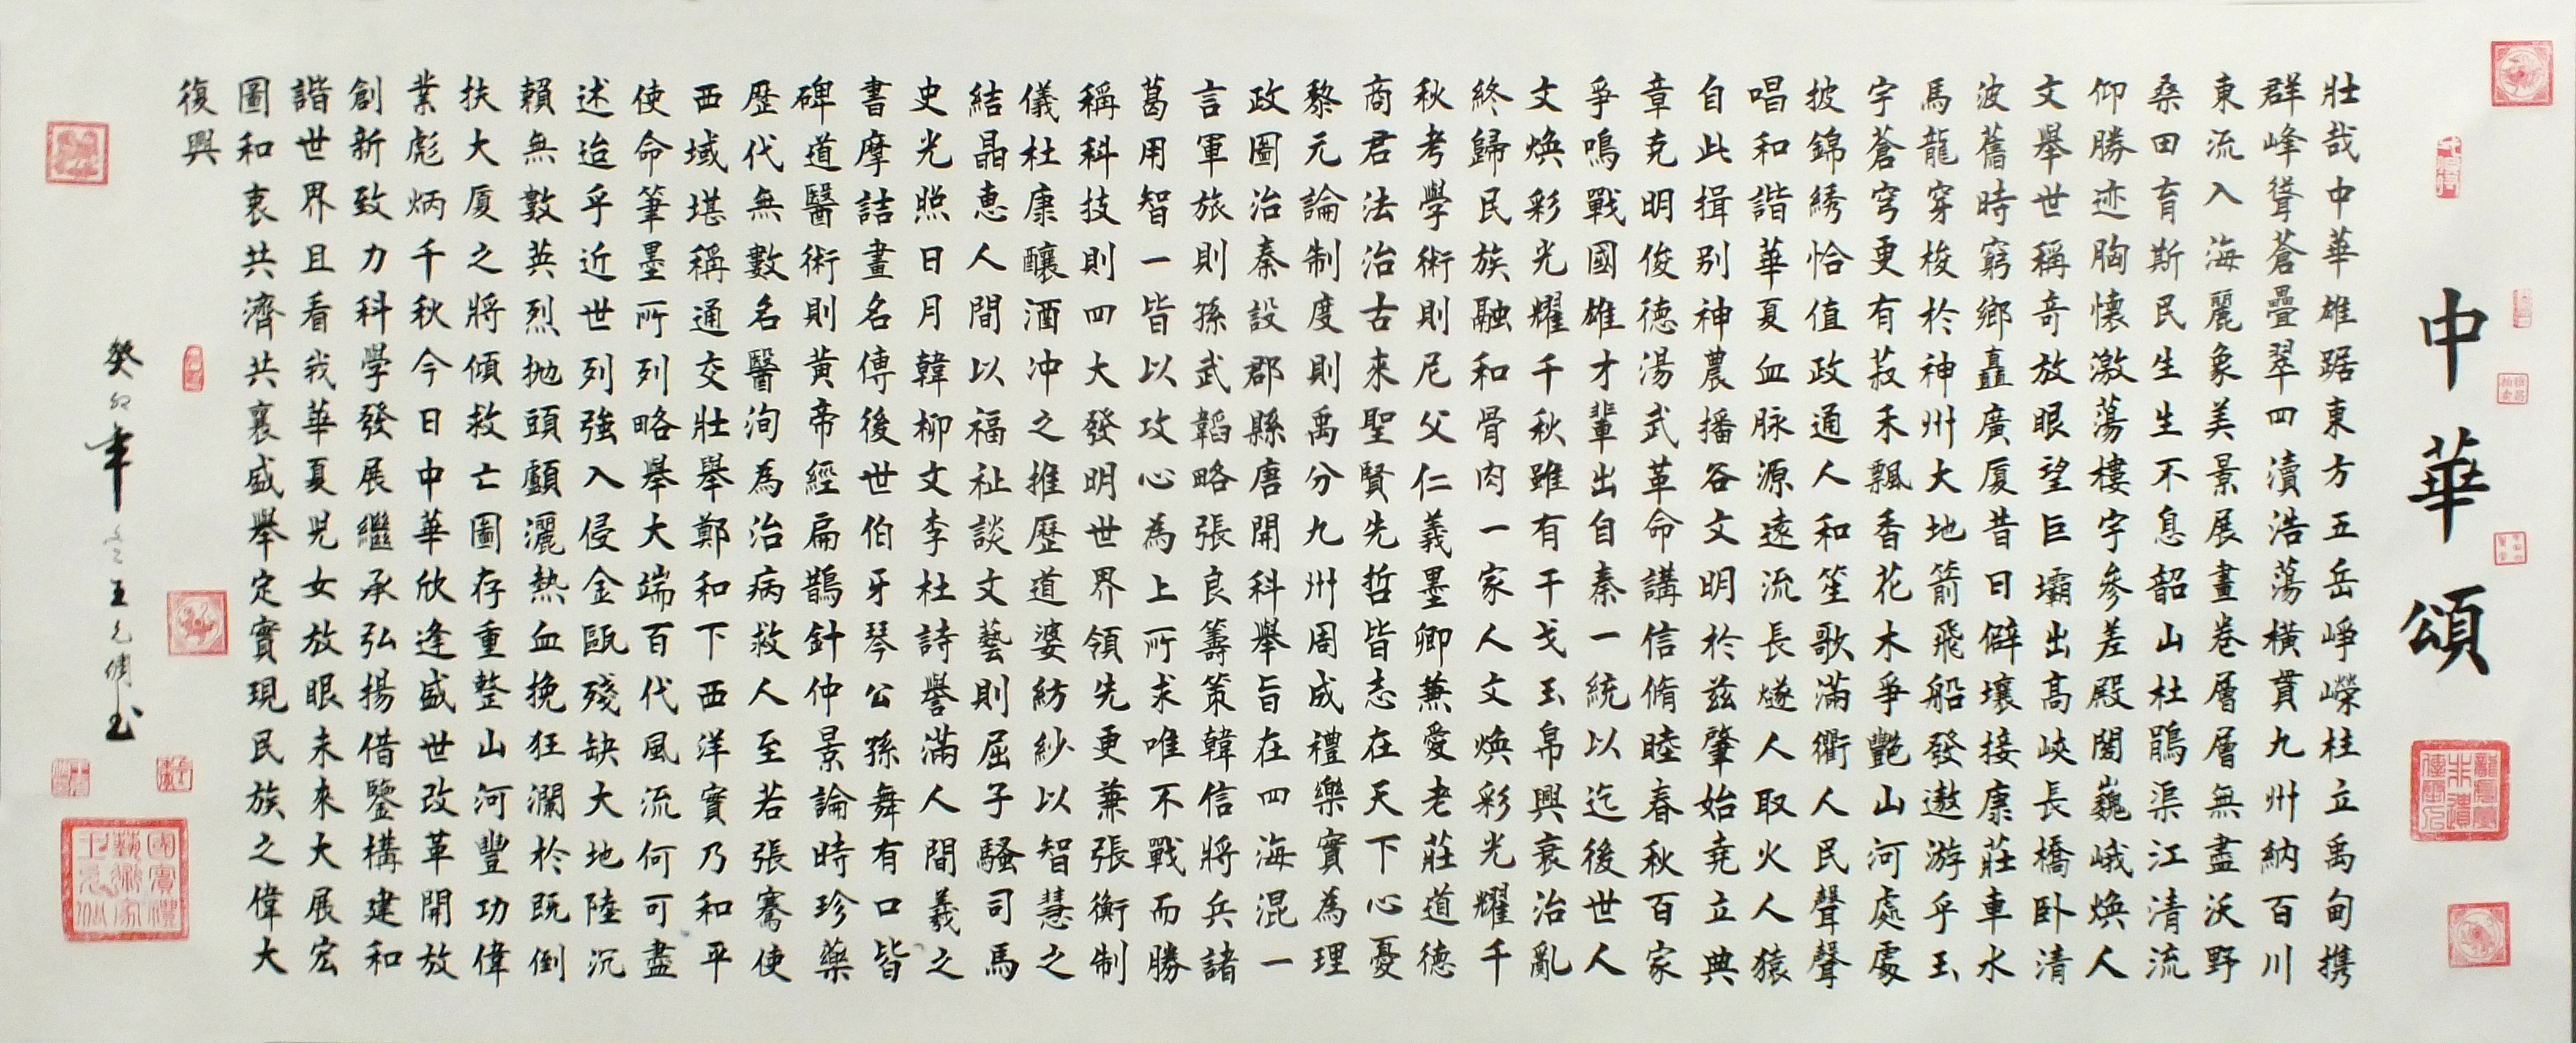 中華頌
壯哉中華雄踞東方五岳崢嶸柱立禹甸携
群峰聳蒼疊翠四瀆浩蕩橫貫九州納百川
東流入海麗象美景展畫卷層層無盡沃野
桑田育斯民生生不息韶山杜鵑渠江清流
仰勝迹胸懷激蕩樓宇參差殿閣巍峨煥人
文舉世稱奇放眼望巨壩出高峽長橋卧清
波舊時窮鄉矗廣厦昔日僻壤接康莊車水
馬龍穿梭於神州大地箭飛船發遨游乎玉
宇蒼穹更有菽禾飄香花木爭艷山河處處
披錦綉恰值政通人和笙歌滿衢人民聲聲
唱和諧華夏血脉源遠流長燧人取火人猿
自此揖别神農播谷文明於兹肇始堯立典
章克明俊德湯武革命講信脩睦春秋百家
爭鳴戰國雄才輩出自秦一統以迄後世人
文煥彩光耀千秋雖有干戈玉帛興衰治亂
終歸民族融和骨肉一家人文煥彩光耀千
秋考學術則尼父仁義墨卿兼愛老莊道德
商君法治古來聖賢先哲皆志在天下心憂
黎元論制度則禹分九州周成禮樂實為理
政圖治秦設郡縣唐開科舉旨在四海混一
言軍旅則孫武韜略張良籌策韓信將兵諸
葛用智一皆以攻心為上所求唯不戰而勝
稱科技則四大發明世界領先更兼張衡制
儀杜康釀酒冲之推歷道婆紡紗以智慧之
結晶惠人間以福祉談文藝則屈子騷司馬
史光照日月韓柳文李杜詩譽滿人間羲之
書摩詰畫名傳後世伯牙琴公孫舞有口皆
碑道醫術則黃帝經扁鵲針仲景論時珍藥
歷代無數名醫洵為治病救人至若張騫使
西域堪稱通交壯舉鄭和下西洋實乃和平
使命筆墨所列略舉大端百代風流何可盡
述迨乎近世列強入侵金甌殘缺大地陸沉
賴無數英烈抛頭顱灑熱血挽狂瀾於既倒
扶大厦之將傾救亡圖存重整山河豐功偉
業彪炳千秋今日中華欣逢盛世改革開放
創新致力科學發展繼承弘揚借鑒構建和
諧世界且看我華夏兒女放眼未來大展宏
圖和衷共濟共襄盛舉定實現民族之偉大
復興
癸卯年冬王